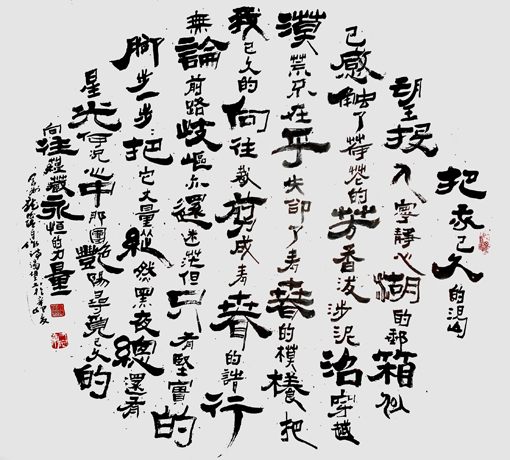 把我已久的渴
望至投入寧靜心湖的邮箱似
已感触了荷花的芳香涉泥沼穿越
漠荒不在乎失卻了青春的模樣把
我已久的向往裁剪成青春的詩行
無論前路岐嶇亦還迷茫但只有堅實的
脚步一步把它丈量縱然黑夜總還有
星光何况心中那團艷陽尋覓已久的
向往蘊藏永恒的力量